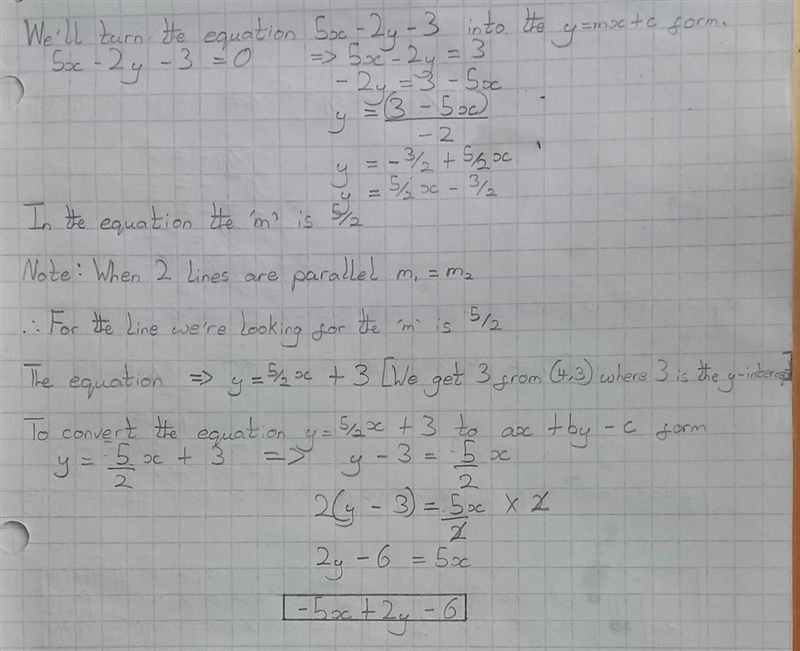 We'll turn the equation 5x - 2y - 3 into the y=mx+c form.
5x - 2y - 3 = 0 => 5x - 2y = 3
- 2y = 3 - 5x
y = (3 - 5x)
-2
y = -3/2 + 5/2 x
y = 5/2 x - 3/2
In the equation the 'm' is 5/2
Note: When 2 lines are parallel m₁ = m₂
∴ For the line we're looking for the 'm' is 5/2
The equation => y = 5/2 x + 3 [We get 3 from (4,3) where 3 is the y-intercept]
To convert the equation y = 5/2 x + 3 to ax + by - c form
y = 5/2 x + 3 => y - 3 = 5/2 x
2(y - 3) = 5x/2 × 2
2y - 6 = 5x
-5x + 2y - 6